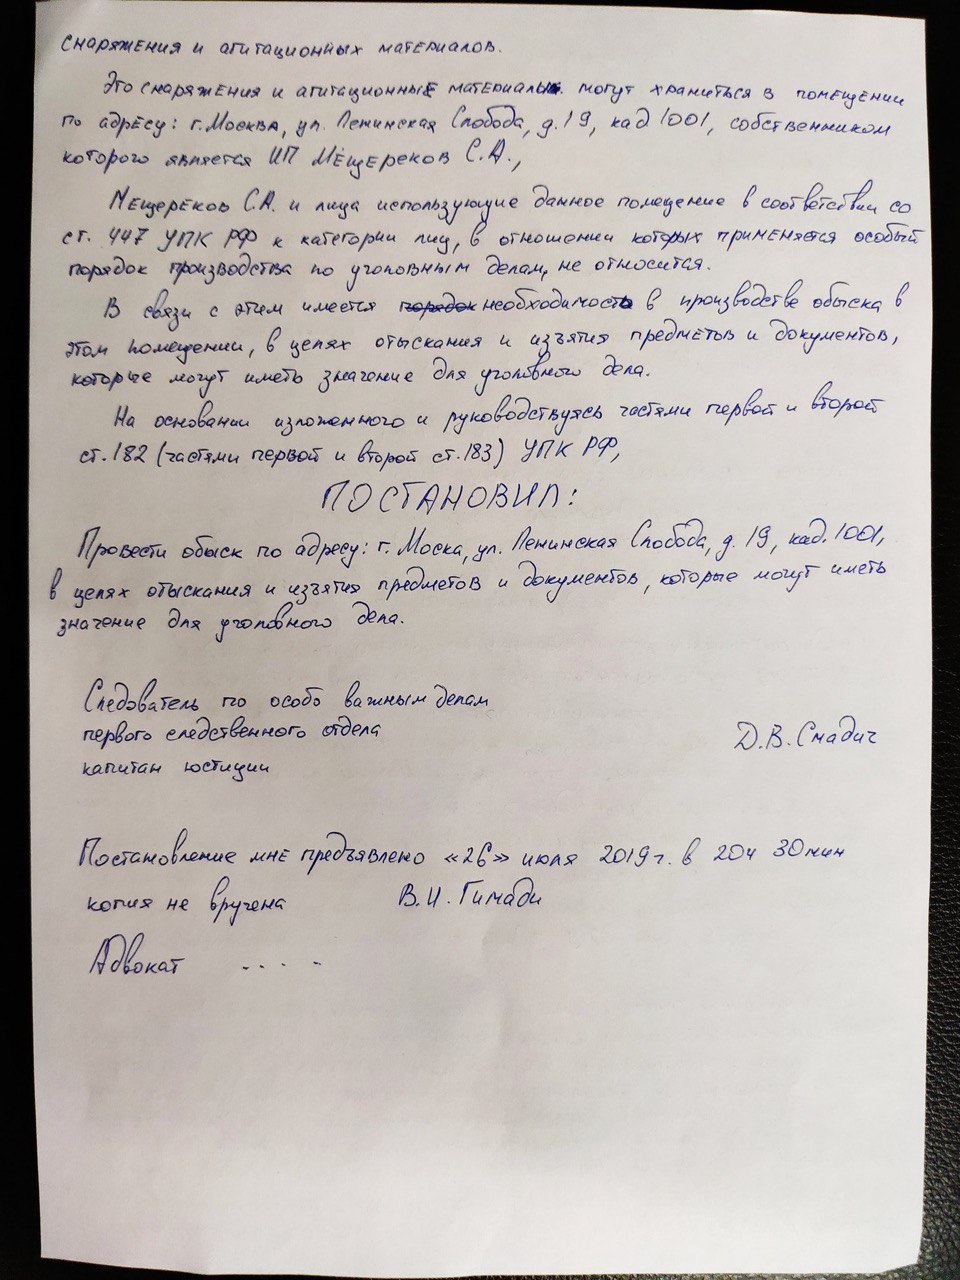 снаряжения и агитационных материалов.
Это снаряжения и агитационные материалы могут храниться в помещении
по адресу: г. Москва, ул. Ленинская Слобода, д. 19, кад 1001, собственником
которого является ИП Мещереков С.А.,
Мещереков С.А. и лица использующие данное помещение в соответствии со
ст. 447 УПК РФ к категории лиц, в отношении которых применяется особый
порядок производства по уголовным делам, не относится.
В связи с этим имеется порядок необходимость в производстве обыска в
этом помещении, в целях отыскания и изъятия предметов и документов,
которые могут иметь значение для уголовного дела.
На основании изложенного и руководствуясь частями первой и второй
ст. 182 (частями первой и второй ст. 183) УПК РФ,
ПОСТАНОВИЛ:
Провести обыск по адресу: г. Моска, ул. Ленинская Слобода, д. 19, кад. 1001,
в целях отыскания и изъятия предметов и документов, которые могут иметь
значение для уголовного дела.
Следователь по особо важным делам
первого следственного отдела
капитан юстиции
Д.В. Смадич
Постановление мне предъявлено «26» июля 2019 г. в 20ч 30мин
копия не вручена В.И. Гимади
Адвокат . . . .